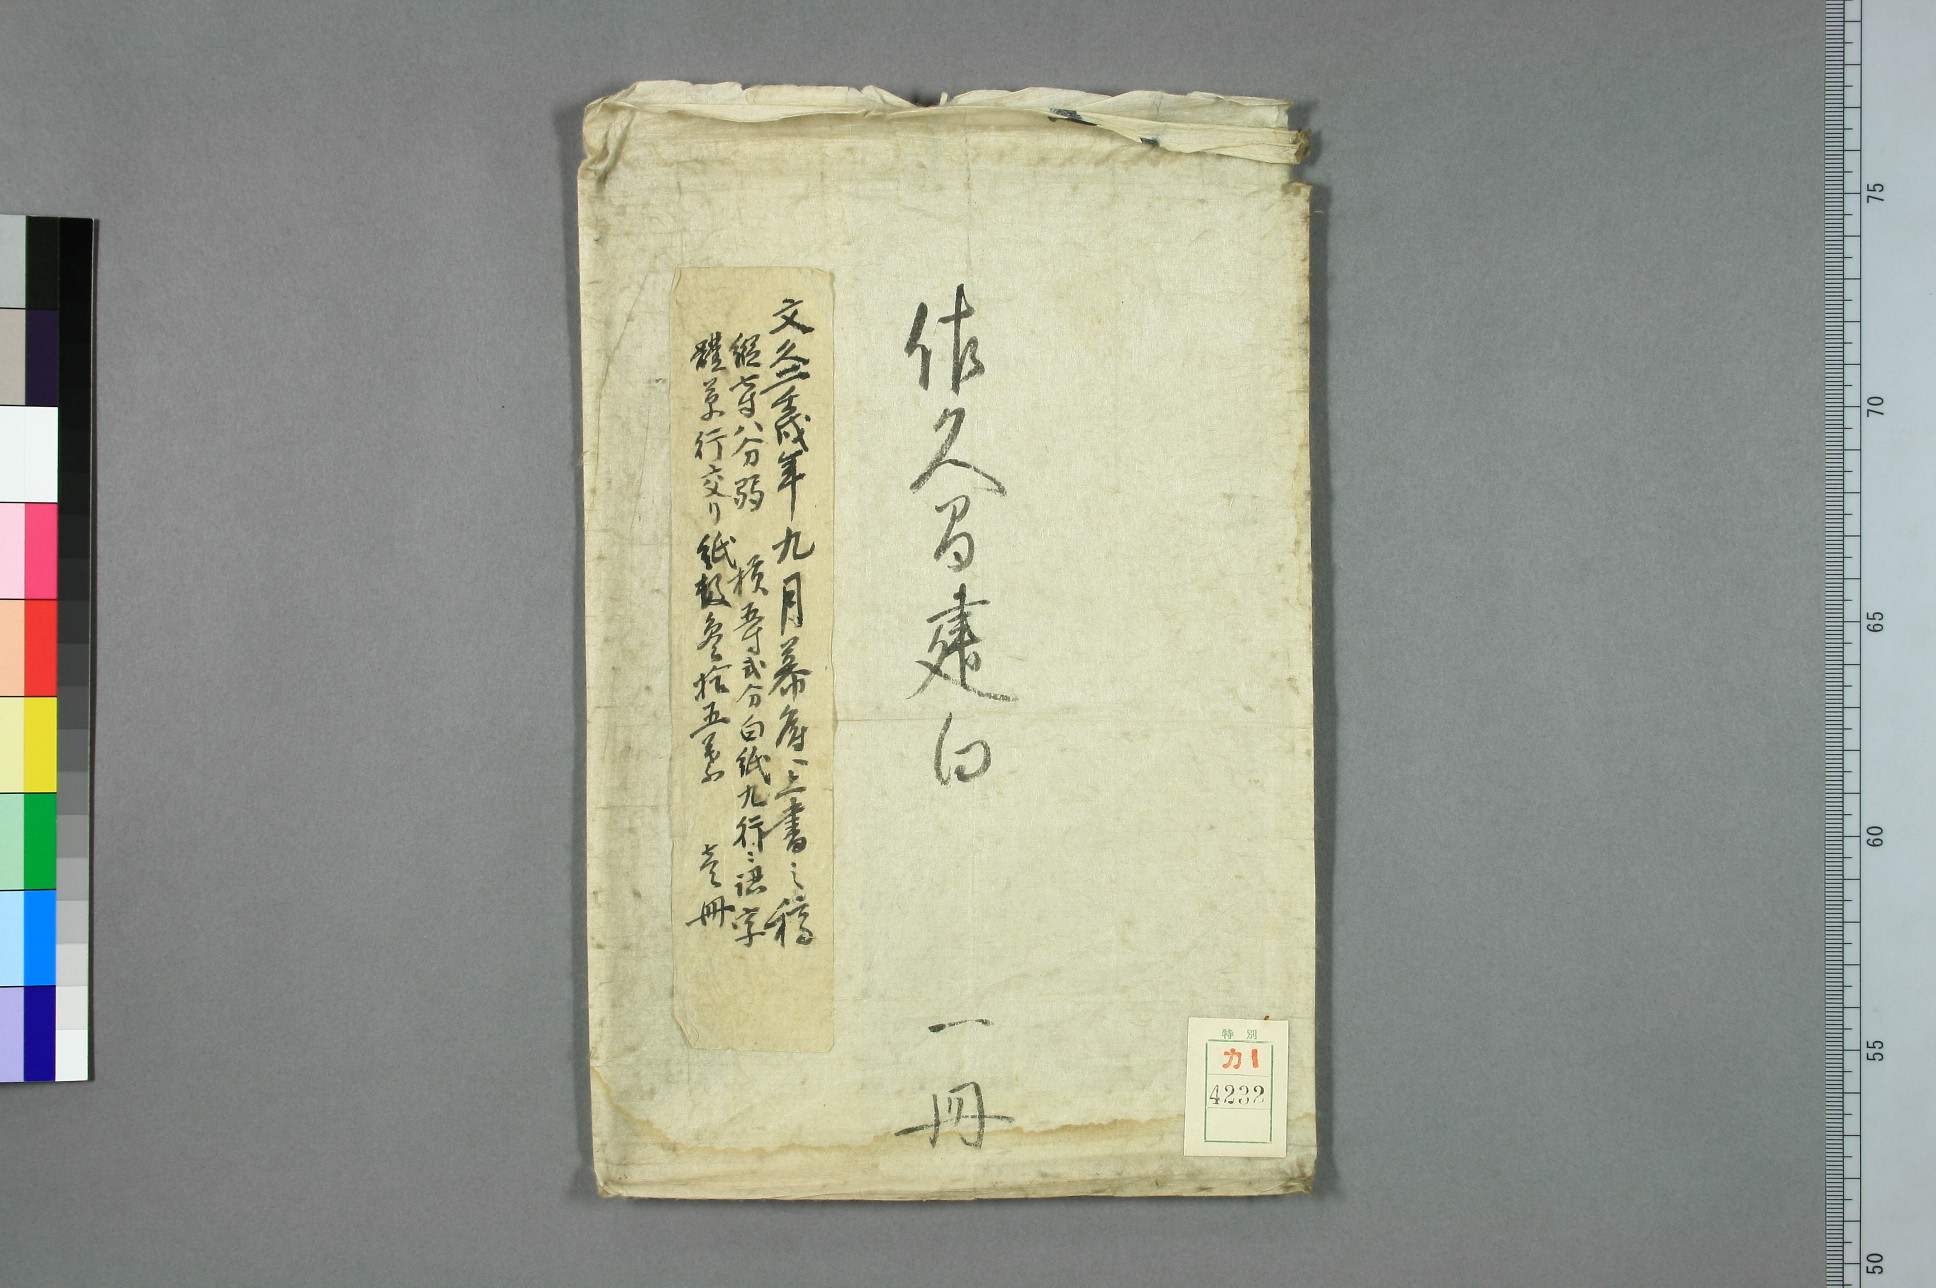 佐久間建白
一冊
文久二壬戌年九月幕府ヘ上書之稿
縦七寸八分弱 横五寸弐分白紙九行ニ認字
體草行交リ紙数参拾五葉 壱冊
特別
カ1
4232
75
70
65
60
55
50